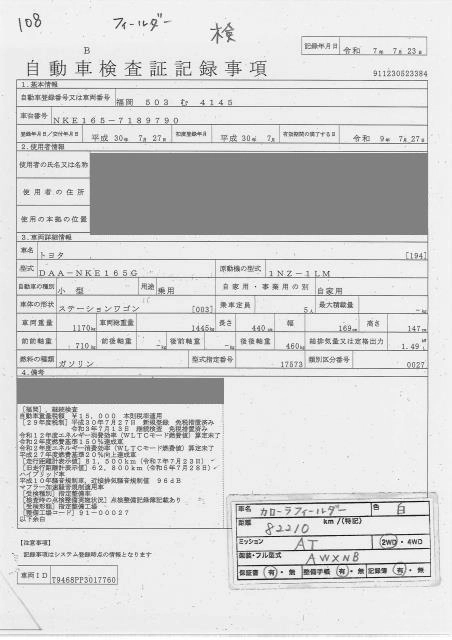 108 フィールダー 検
B
自動車検査証記録事項
記録年月日 令和 7年 7月 23日
911230523384
1.基本情報
自動車登録番号又は車両番号 福岡 503 む 4145
車台番号 NKE165-7189790
登録年月日/交付年月日 平成 30年 7月 27日 初度登録年月 平成 30年 7月 有効期間の満了する日 令和 9年 7月 27日
2.使用者情報
使用者の氏名又は名称
使用者の住所
使用の本拠の位置
3.車両詳細情報
車名 トヨタ [194]
型式 DAA-NKE165G 原動機の型式 1NZ-1LM
自動車の種別 小型 用途 乗用 自家用・事業用の別 自家用
車体の形状 ステーションワゴン [003] 乗車定員 5人 最大積載量 -kg
車両重量 1170kg 車両総重量 1445kg 長さ 440cm 幅 169cm 高さ 147cm
前前軸重 710kg 前後軸重 -kg 後前軸重 -kg 後後軸重 460kg 総排気量又は定格出力 1.49 L
燃料の種類 ガソリン 型式指定番号 17573 類別区分番号 0027
4.備考
[福岡], 継続検査
自動車重量税額 ¥15,000 本則税率適用
[29年度税制]平成30年7月27日 新規登録 免税措置済み
令和3年7月13日 継続検査 免税措置済み
令和12年度エネルギー消費効率(WLTCモード燃費値)算定未了
令和2年度燃費基準150%達成車
令和2年度エネルギー消費効率(WLTCモード燃費値)算定未了
平成27年度燃費基準20%向上達成車
[走行距離計表示値]81,500km(令和7年7月23日)
[旧走行距離計表示値]62,800km(令和5年7月28日)
ハイブリッド車
平成10年騒音規制車, 近接排気騒音値 96dB
マフラー加速騒音規制適用車
[受検種別]指定整備車
[検査時の点検整備実施状況]点検整備記録簿記載あり
[受検形態]指定整備工場
[整備工場コード]91-00027
以下余白
車名 カローラフィールダー 色 白
距離 82210 km/(特記)
ミッション AT 2WD・4WD
類装・フル型式 AWXNB
保証書 有・無 整備手帳 有・無 記録簿 有・無
【注意事項】
記録事項はシステム登録時点の情報となります
車両ID T9468PP3017760